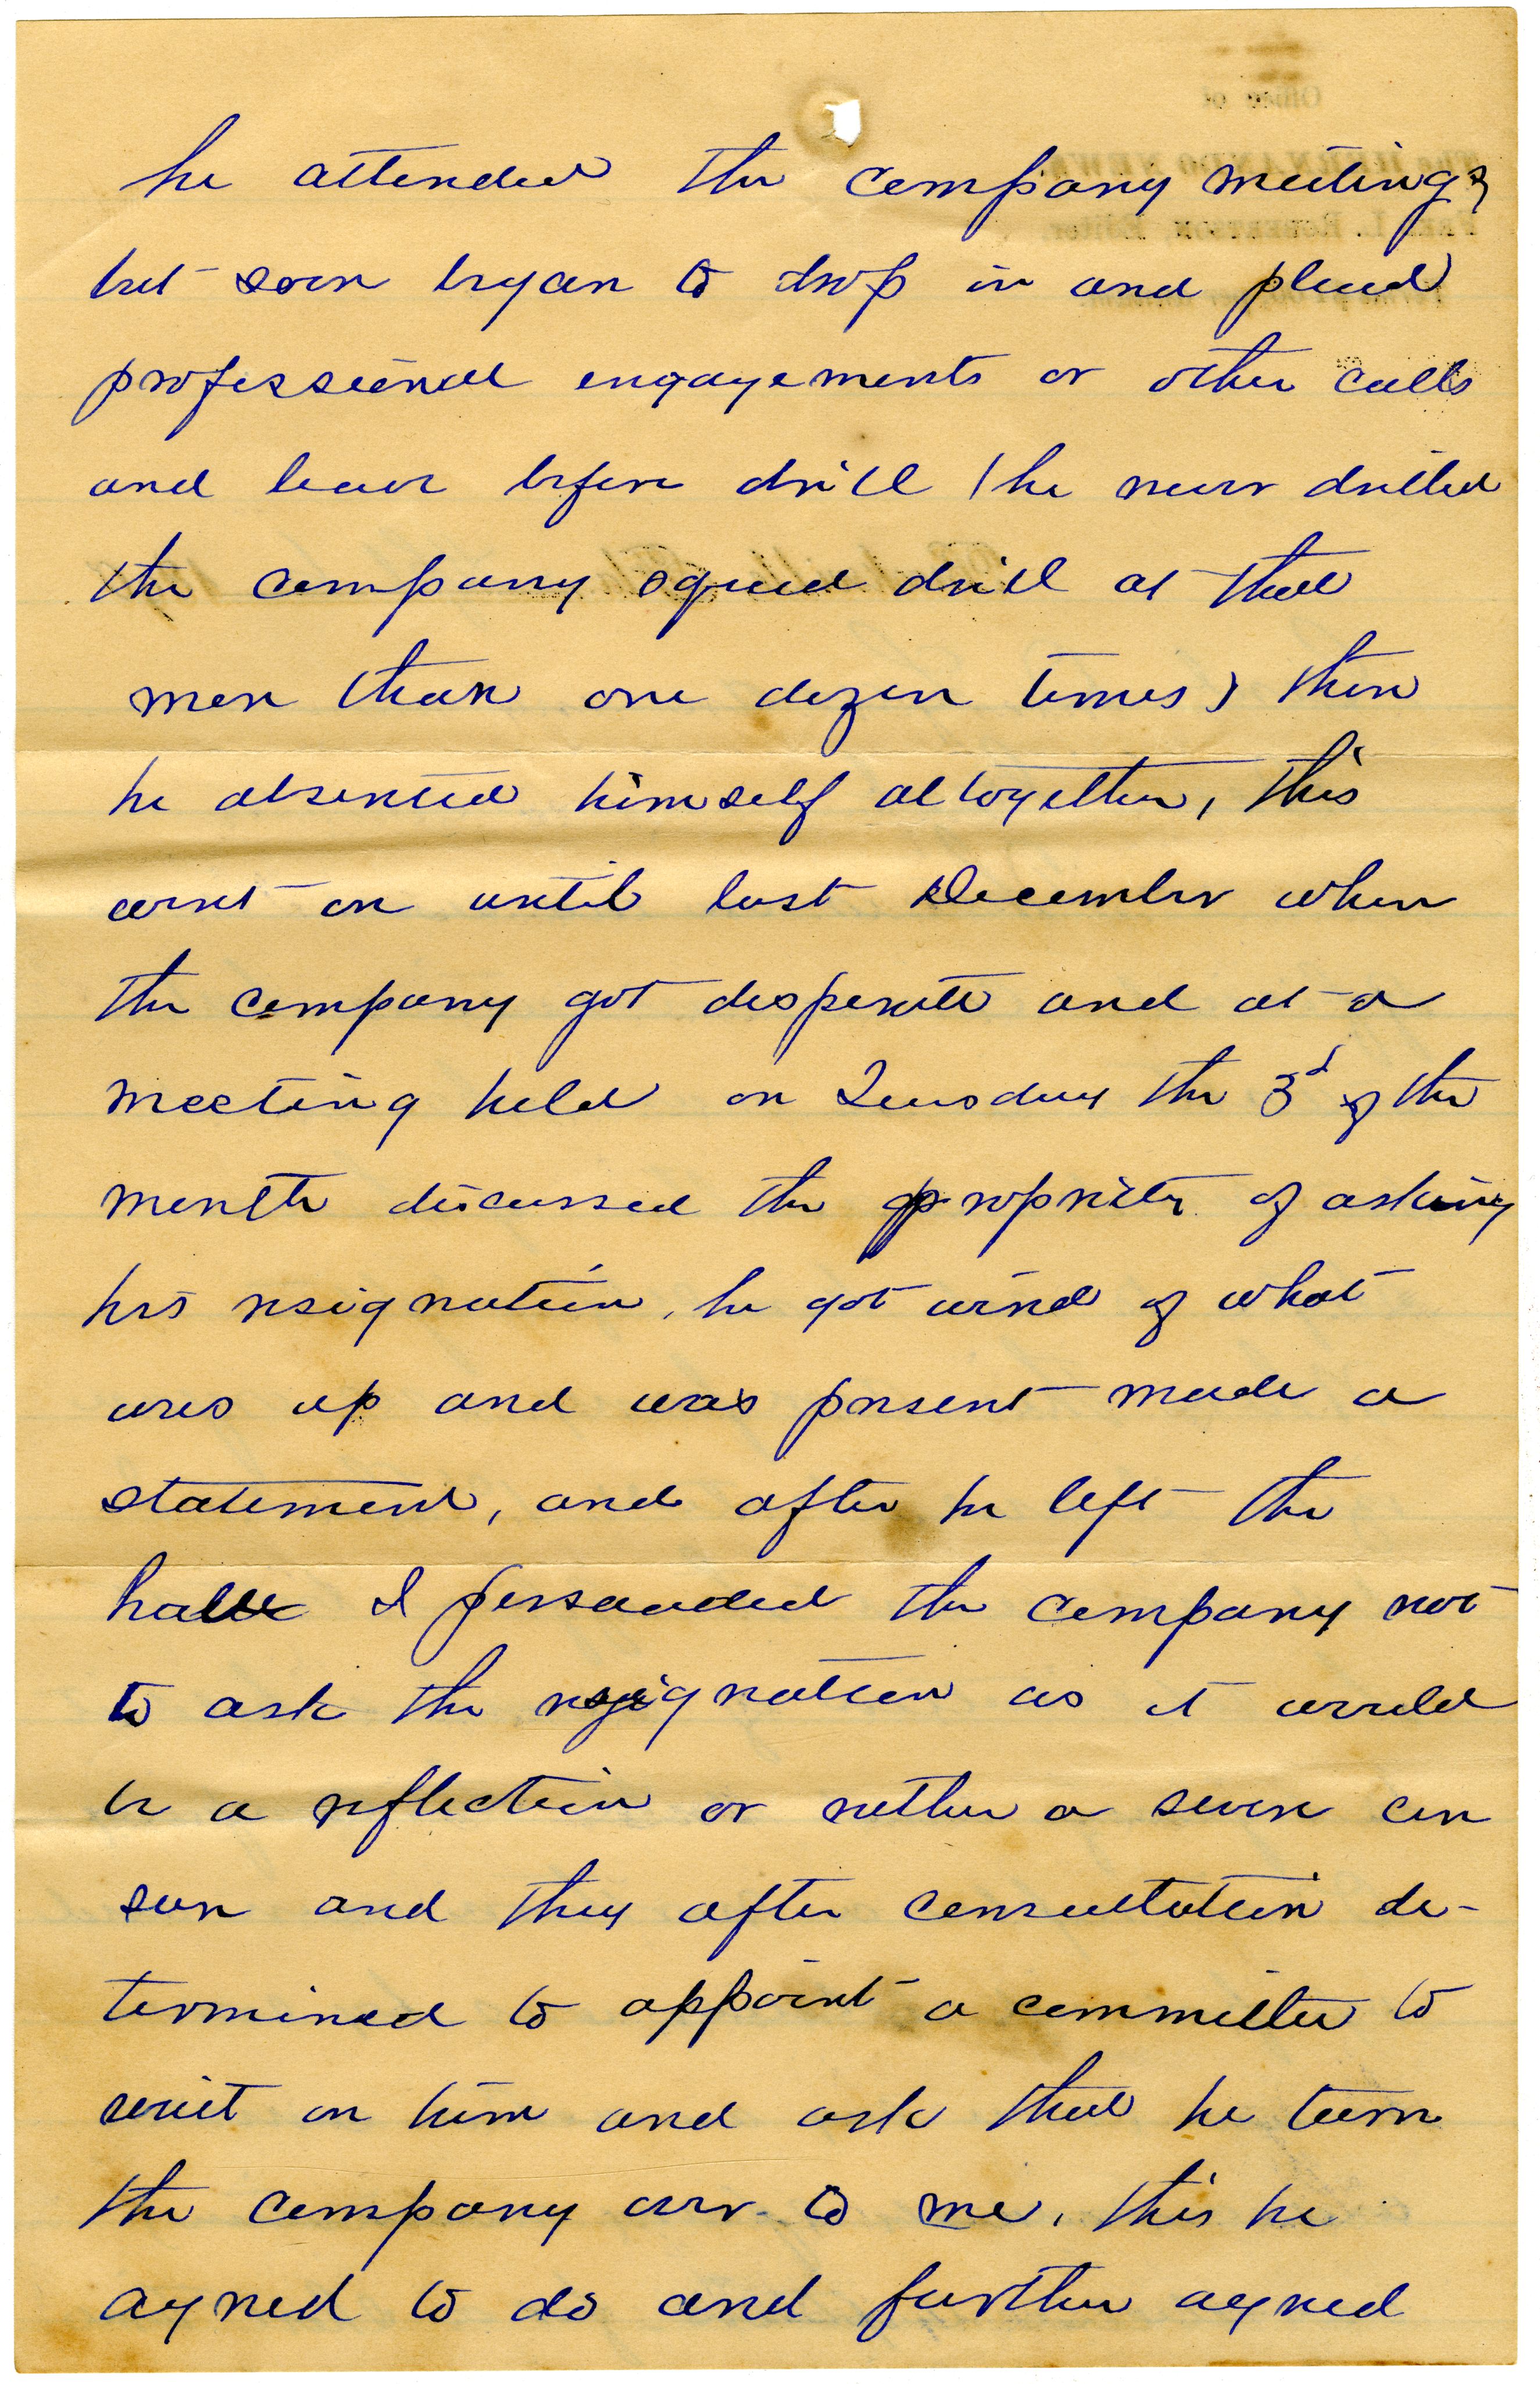 he attended the company meetings
but soon began to drop in and plead
professional engagements or other calls
and leave before drill (he never drilled
the company squad drill at that
more than one dozen times) then
he absented himself altogether, this
went on until last December when
the company got desperate and at a
meeting held on Tuesday the 3d of the
month discussed the propriety of asking
his resignation, he got wind of what
was up and was present made a
statement, and after he left the
hall I persuaded the company not
to ask the resignation as it would
be a reflection or rather a severe cen
sure and they after consultation de-
termined to appoint a committee to
wait on him and ask that he turn
the company over to me, this he
agreed to do and further agreed
Office of
The HERNANDO NEWS
FRED L. ROBERTSON, Editor.